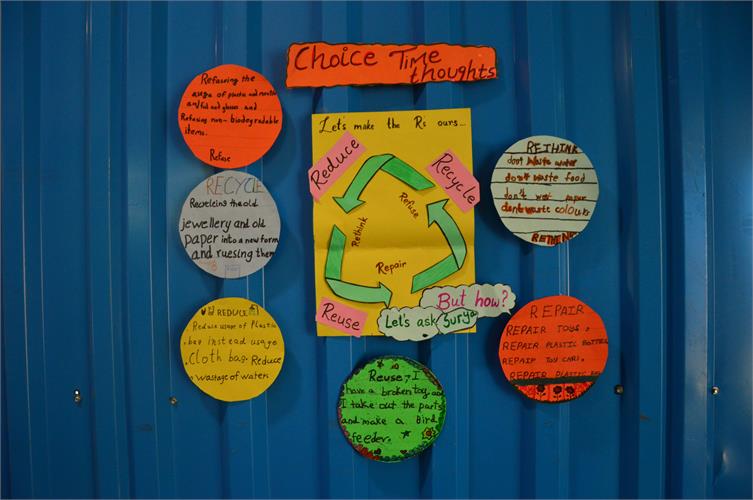 Choice Time
thoughts
Let's make the Rs ours...
Reduce
Recycle
Refuse
Rethink
Repair
Reuse
But how?
Let's ask Surya
Refussing the
of plastic and
and glasses and
Refusing non-biodegradable
items.
Refuse
RECYCLE
Recycleing the old
jewellery and old
paper into a new form
and ruesing them
REDUCE
Reduce usage of Plastic
bag instead usage
. Cloth bag. Reduce
. wastage of water.
Reuse; I
have a broken toy and
I take out the parts
and make a Bird
feeder.
RETHINK
dont waste water
don't waste food
don't wast paper
dont waste colours
RETHINK
REPAIR
REPAIR TOYS.
REPAIR PLASTIC BOTTLES
REPAIP TOY CARS.
REPAIR PLASTIC